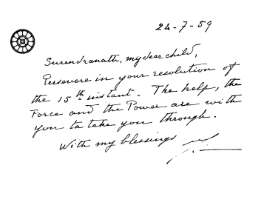 24-7-59
Surendranath, my dear child,
Persevere in your resolution of
the 15th instant. The help, the
Force and the Power are with
you to take you through.
With my blessings